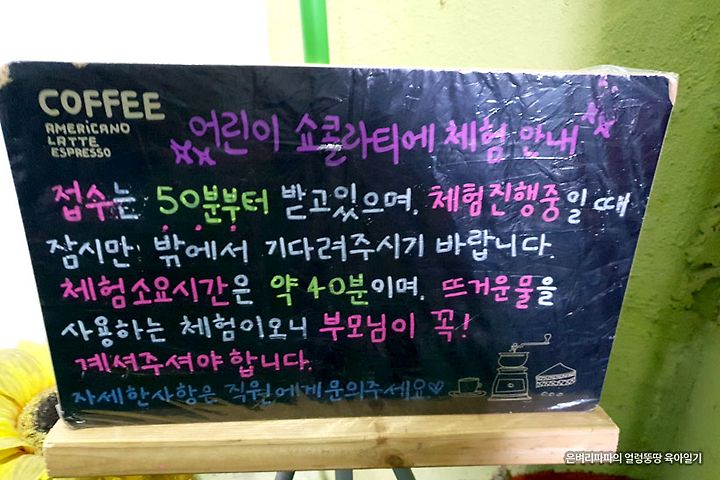 COFFEE
AMERICANO
LATTE
ESPRESSO
어린이 쇼콜라티에 체험 안내
접수는 50분부터 받고있으며, 체험진행중일 때
잠시만 밖에서 기다려주시기 바랍니다.
체험소요시간은 약 40분이며, 뜨거운물을
사용하는 체험이오니 부모님이 꼭!
계셔주셔야합니다.
자세한사항은 직원에게문의주세요♡
은벼리파파의 얼렁뚱땅 육아일기